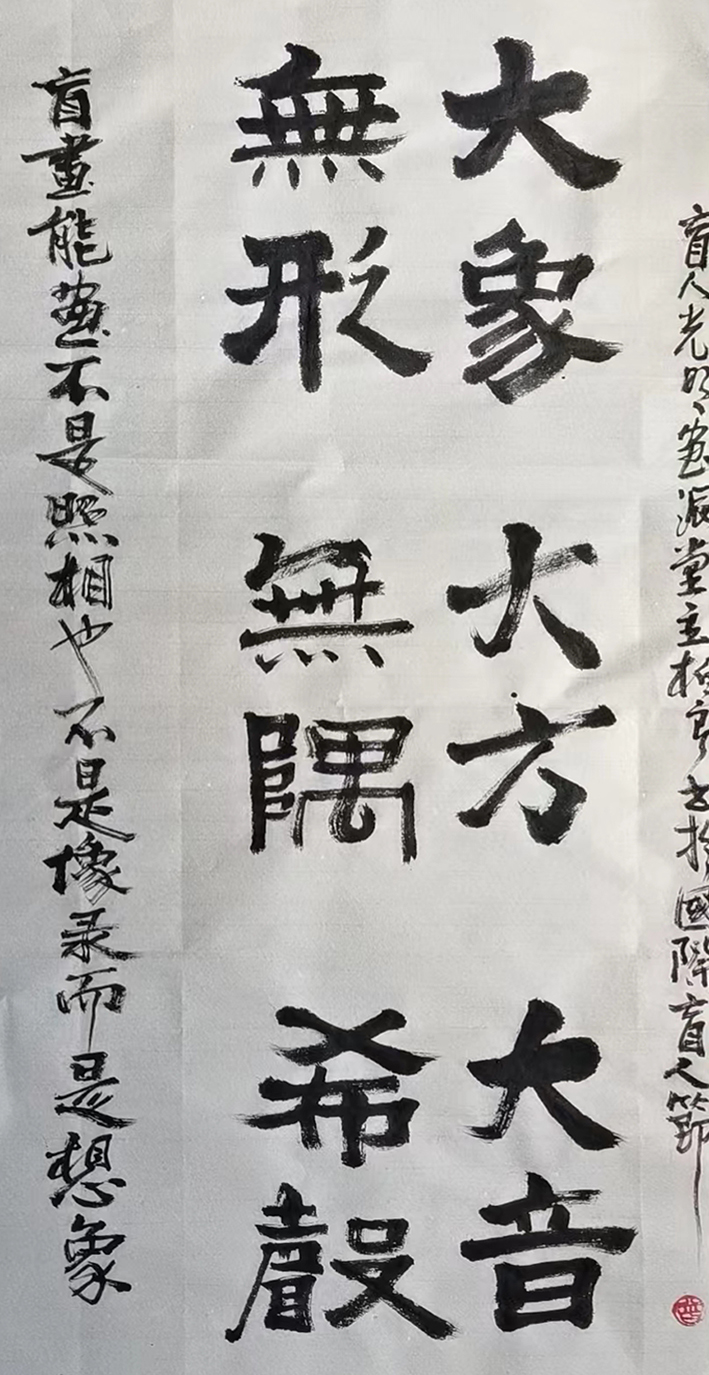 盲人光明画派堂主柏书於國際盲人節
大象 大方 大音
無形 無隅 希聲
盲畫能画不是照相也不是像录而是想象